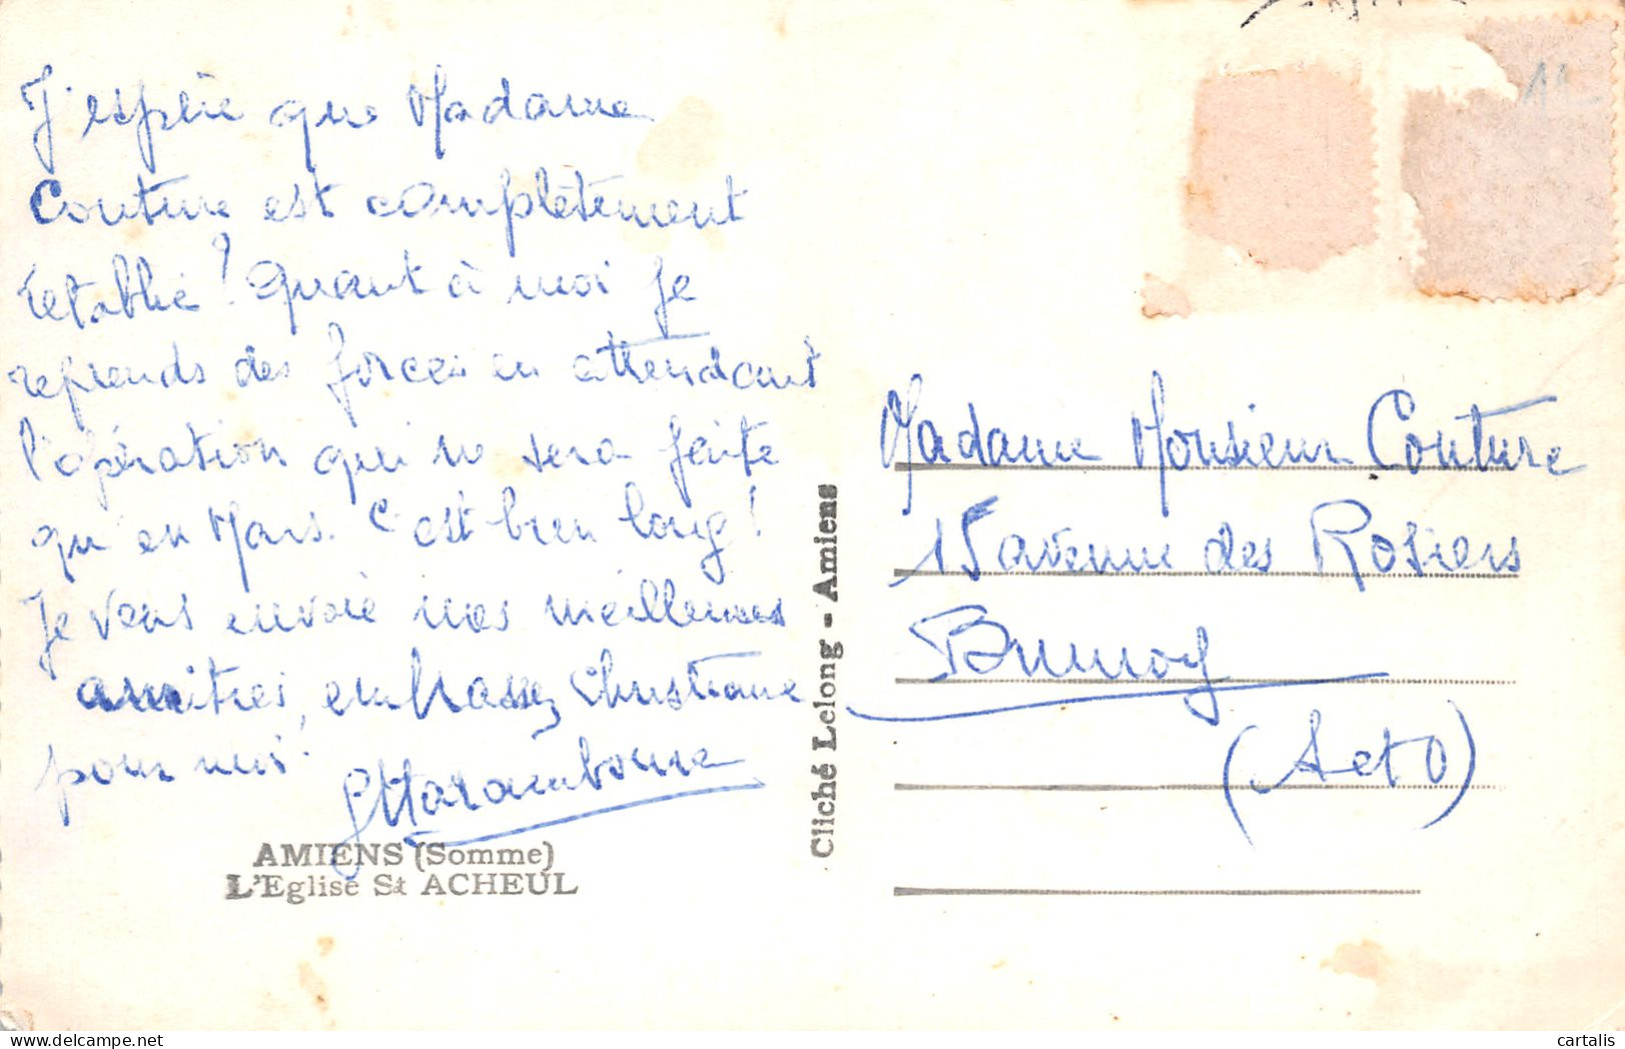 J'espère que Madame
Couture est complètement
rétablie ? Quant à moi je
reprends des forces en attendant
l'opération qui ne sera faite
qu'en Mars. C'est bien long !
Je vous envoie nos meilleures
amitiés, embrassez Christiane
pour moi.
AMIENS (Somme)
L'Eglise St ACHEUL
Cliché Lelong - Amiens
12
Madame Monsieur Couture
15 avenue des Rosiers
Brunoy
(S et O)
cartalis